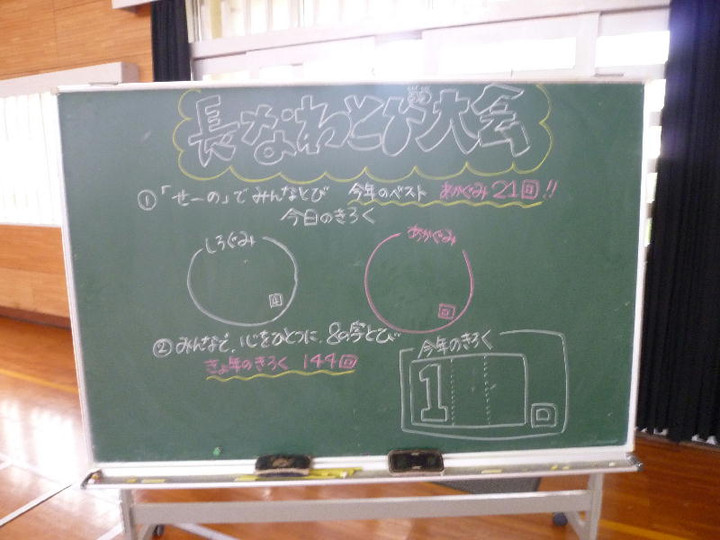 長なわとび大会
①「せーの」でみんなとび 今年のベスト あかぐみ21回!!
今日のきろく
しろぐみ
回
あかぐみ
回
②みんなで、心をひとつに、8の字とび
きょ年のきろく 144回
今年のきろく
1
回